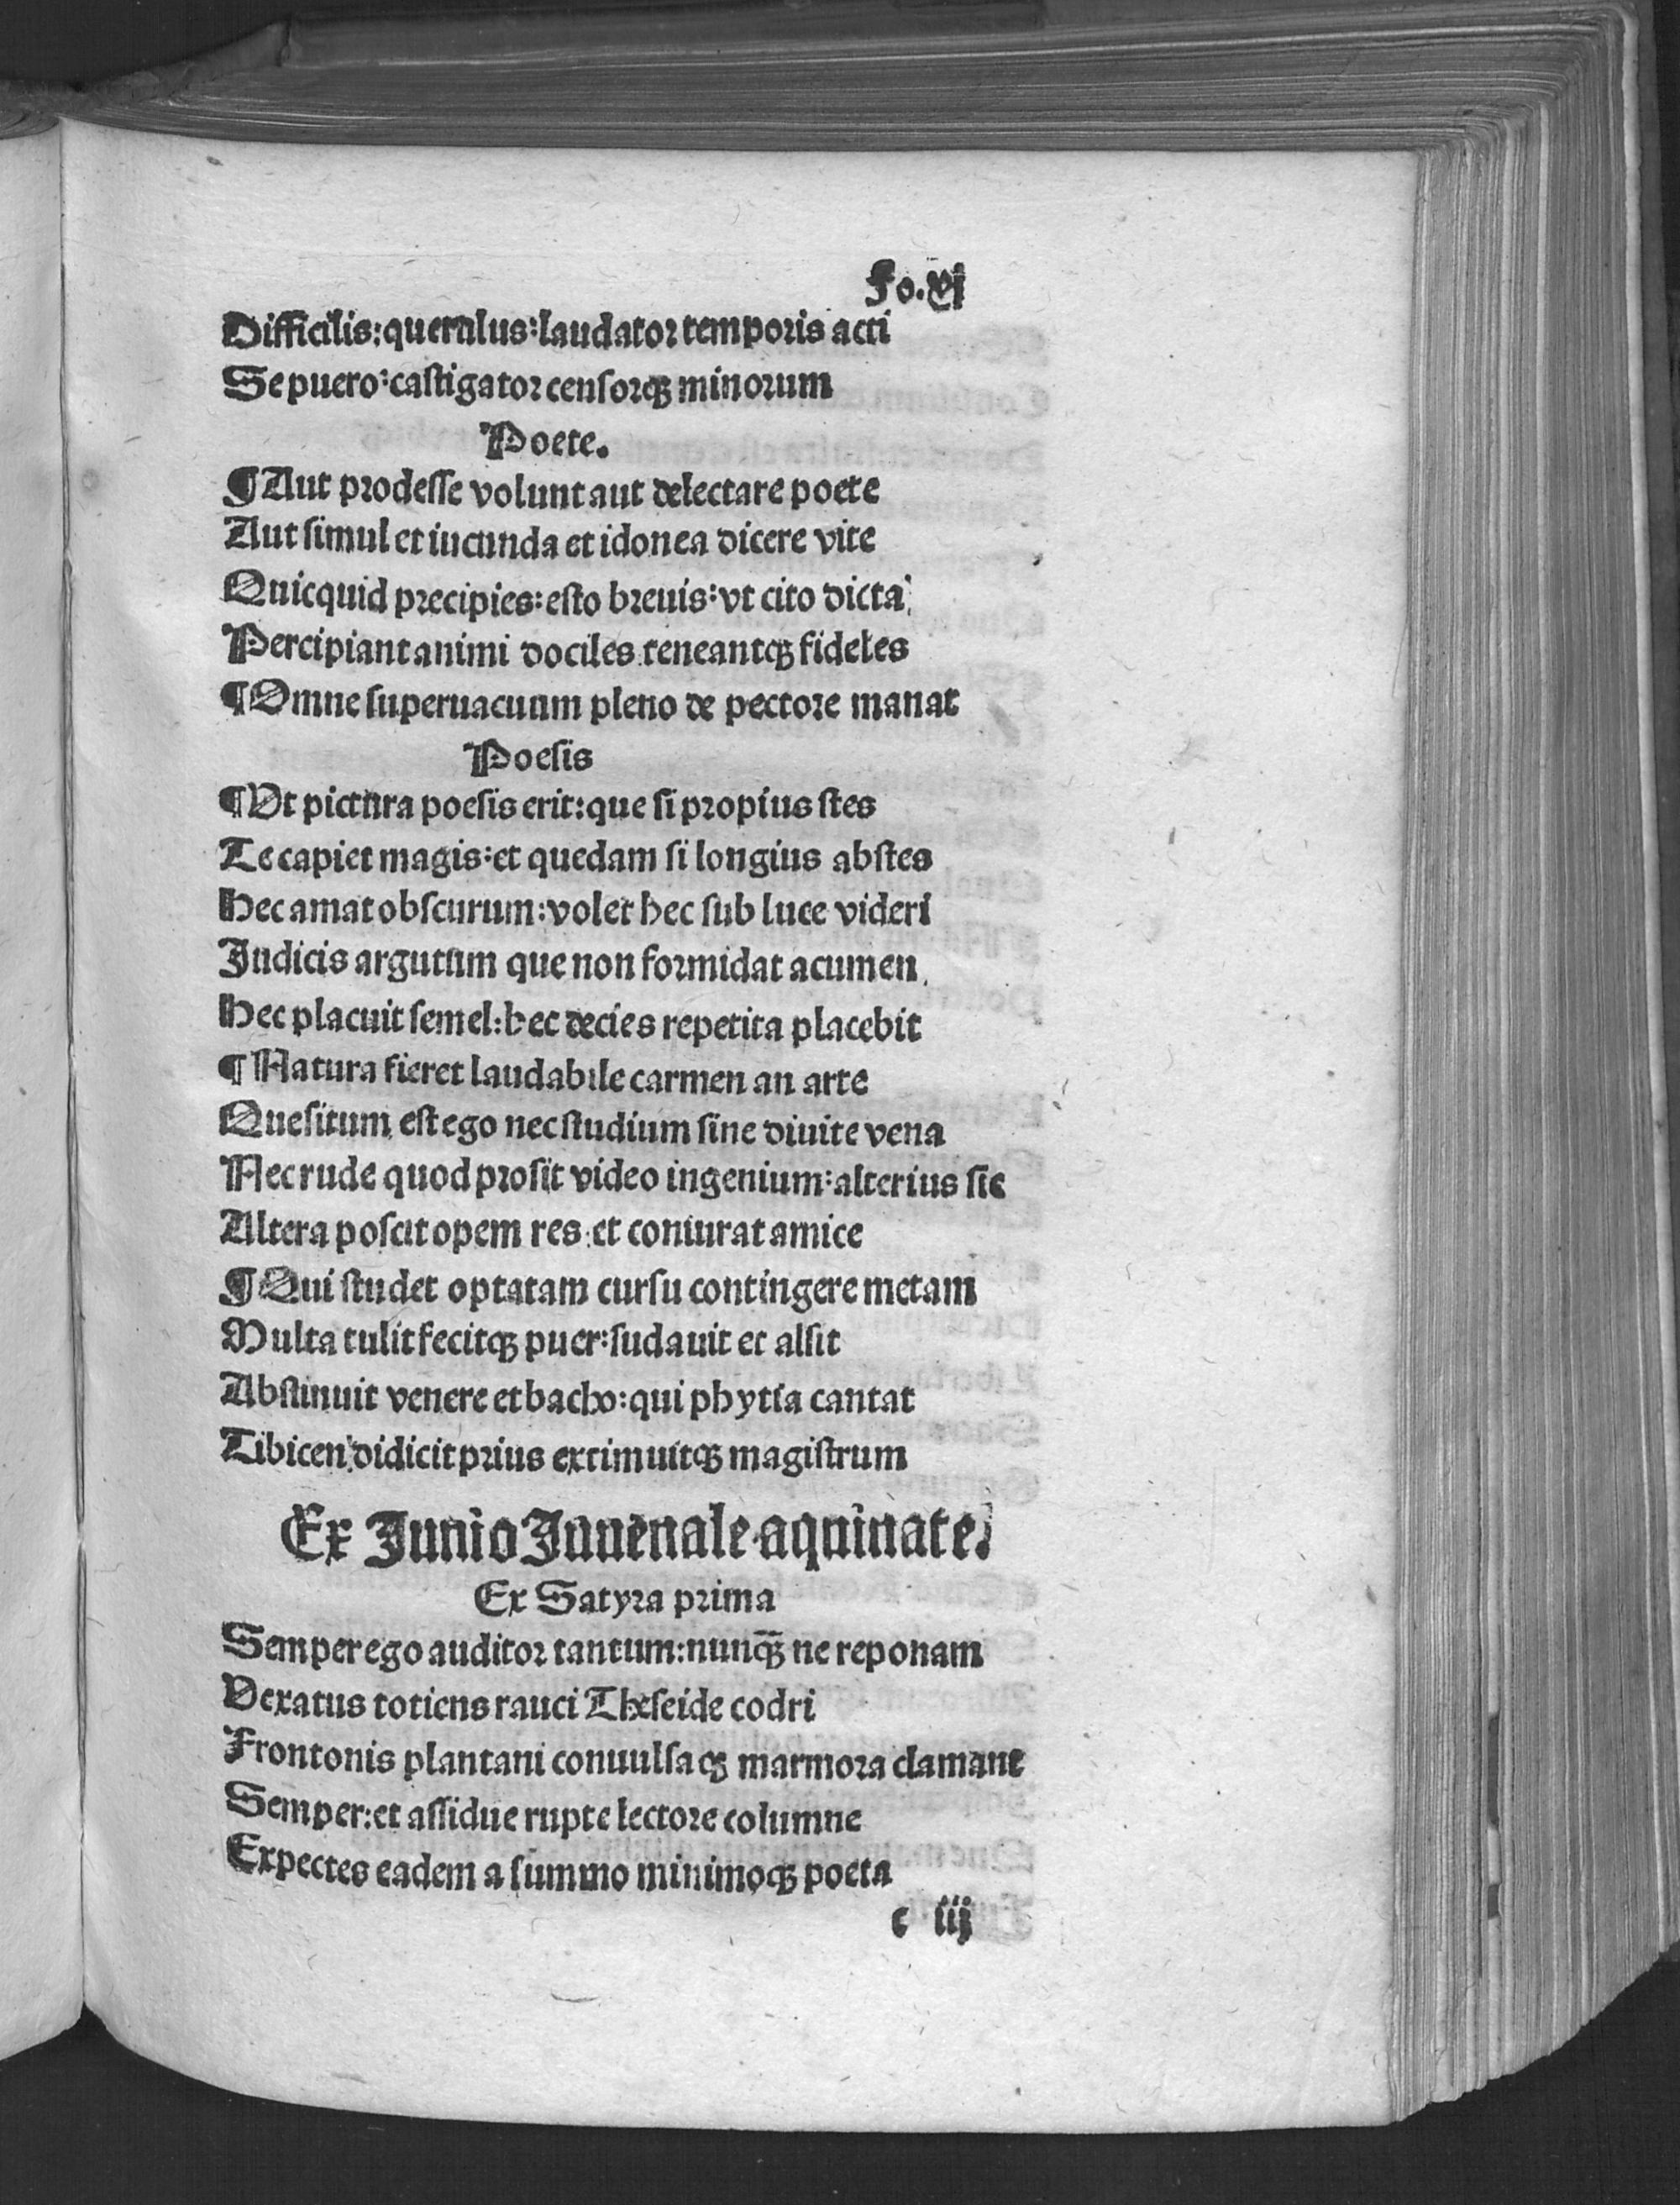 Fo.vi
Difficilis:querulus:laudator temporis acti
Se puero:castigator censorq&#xA75B; minorum
Poete.
¶Aut prodesse volunt aut delectare poete
Aut simul et iucunda et idonea dicere vite
Quicquid precipies:esto breuis:vt cito dicta
Percipiant animi dociles teneantqꝫ fideles
¶Omne superuacuum pleno de pectore manat
Poesis
¶Vt pictura poesis erit:que si propius stes
Te capiet magis:et quedam si longius abstes
Hec amat obscurum:volet hec sub luce videri
Judicis argutum que non formidat acumen.
Hec placuit semel:hec decies repetita placebit
¶Natura fieret laudabile carmen an arte
Quesitum est ego nec studium sine diuite vena
Nec rude quod prosit video ingenium:alterius sic
Altera poscit opem res:et coniurat amice
¶Qui studet optatam cursu contingere metam
Multa tulit fecitqꝫ puer:sudauit et alsit
Abstinuit venere et bacho:qui phytia cantat
Tibicen:didicit prius extimuitqꝫ magistrum
Ex Junio Juuenale aquinate.
Ex Satyra prima
Semper ego auditor tantum:nunq̄ꝫ ne reponam
Vexatus totiens rauci Theseide codri
Frontonis plantani conuulsaqꝫ marmora clamant
Semper:et assidue rupte lectore columne
Expectes eadem a summo minimoqꝫ poeta
c iij